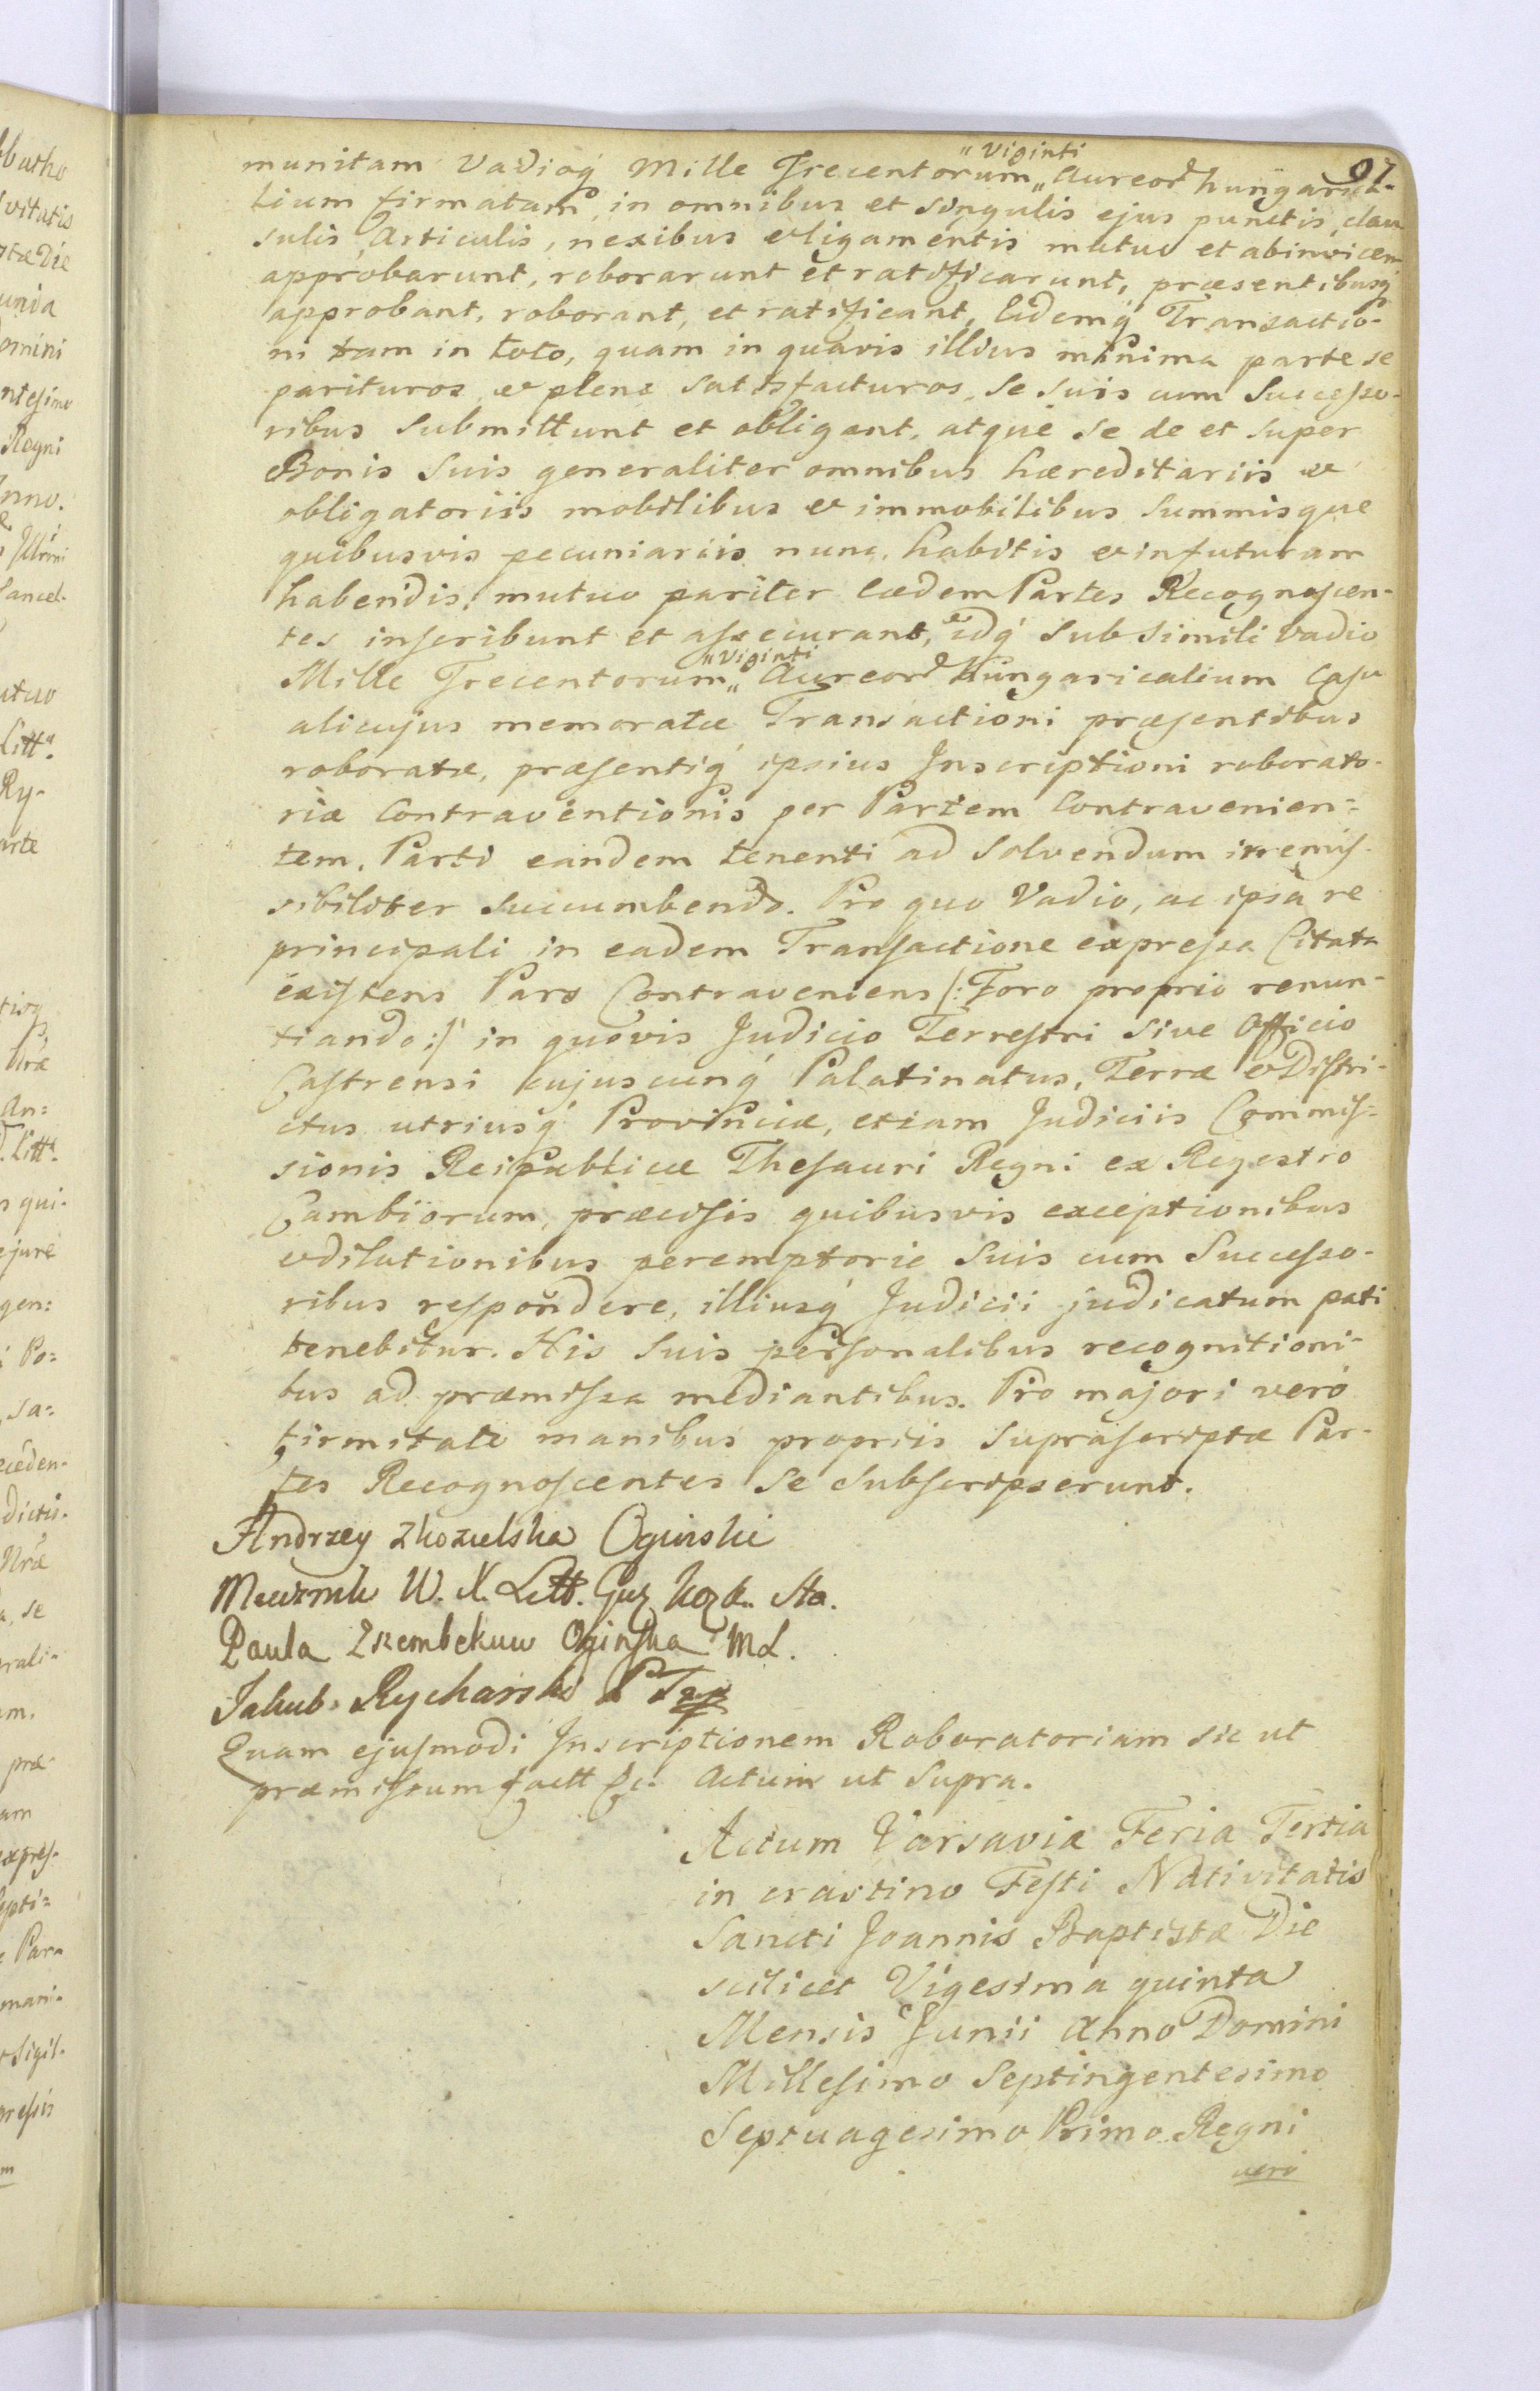 97
munitam Vadioq́ Mille Trecentorum „Viginti„ Aureor hungarica-
lium firmatam, in omnibus et singulis ejus punctis, clau
sulis Articulis, nexibus et ligamentis mutuo et abinvicem
approbarunt, roborarunt et ratificarunt, præsentibusq́
approbant, roborant, et ratificant, Eidemq́ Transactio-
ni tam in toto, quam in quavis illius minima parte se
parituros et plene satisfacturos, se suis cum Successo-
ribus submittunt et obligant, atque se de et super
Bonis suis generaliter omnibus hæreditariis et
obligatoriis mobilibus et immobilibus Summisque
quibusvis pecuniariis nunc habitis et in futuram
habendis, mutuo pariter eædem Partes Recognoscen-
tes inscribunt et assecurant, idq́ sub simili vadio
Mille Trecentorum „Viginti„ Aureor Hungaricalium casu
alicujus memoratæ Transactioni præsentibus
roboratæ, præsentiq́ ipsius Inscriptioni roborato-
riæ Contraventionis per Partem Contravenien=
tem, Parti eandem tenenti ad solvendum irremis-
sibiliter succumbendo. Pro quo Vadio, ac ipsa re
principali in eadem Transactione expressa Citata
existens Pars Contraveniens /: Foro proprio renun-
tiando :/ in quovis Judicio Terrestri sive Officio
Castrensi cujuscunq́ Palatinatus, Terræ et Distri-
ctus utriusq́ Provinciæ, etiam Judiciis Commis=
sionis Reipublicæ Thesauri Regni ex Regestro
Cambiorum, præcisis quibusvis exceptionibus
et dilationibus peremptorie suis cum Successo-
ribus respondere, illiusq́ Judicii judicatum pati
tenebitur. His suis personalibus recognitioni-
bus ad præmissa mediantibus. Pro majori vero
firmitate manibus propriis suprascriptæ Par-
tes Recognoscentes se subscripserunt.
Andrzey z Kozielska Oginski
Miecznik W. X. Litt.
Paula z Szembekuw Oginska M L.
Jakub Rycharski
Quam ejusmodi Inscriptionem Roboratoriam sic ut
præmissum factt &c. Actum ut supra.
Actum Varsaviæ Feria Tertia
in crastino Festi Nativitatis
Sancti Joannis Baptistæ Die
scilicet Vigesima quinta
Mensis Junii Anno Domini
Millesimo Septingentesimo
Septuagesimo Primo Regni
vero